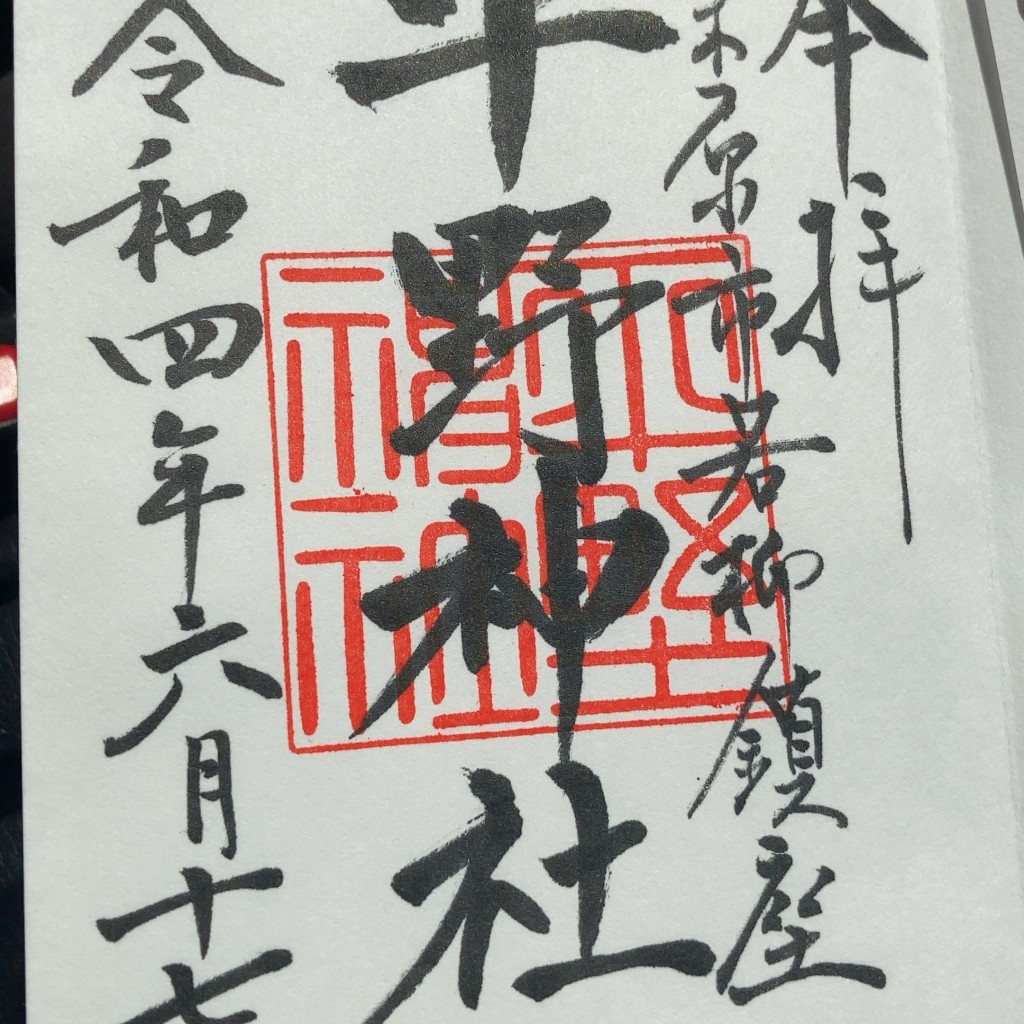 奉拝
栗原市若柳鎮座
平野神社
令和四年六月十七